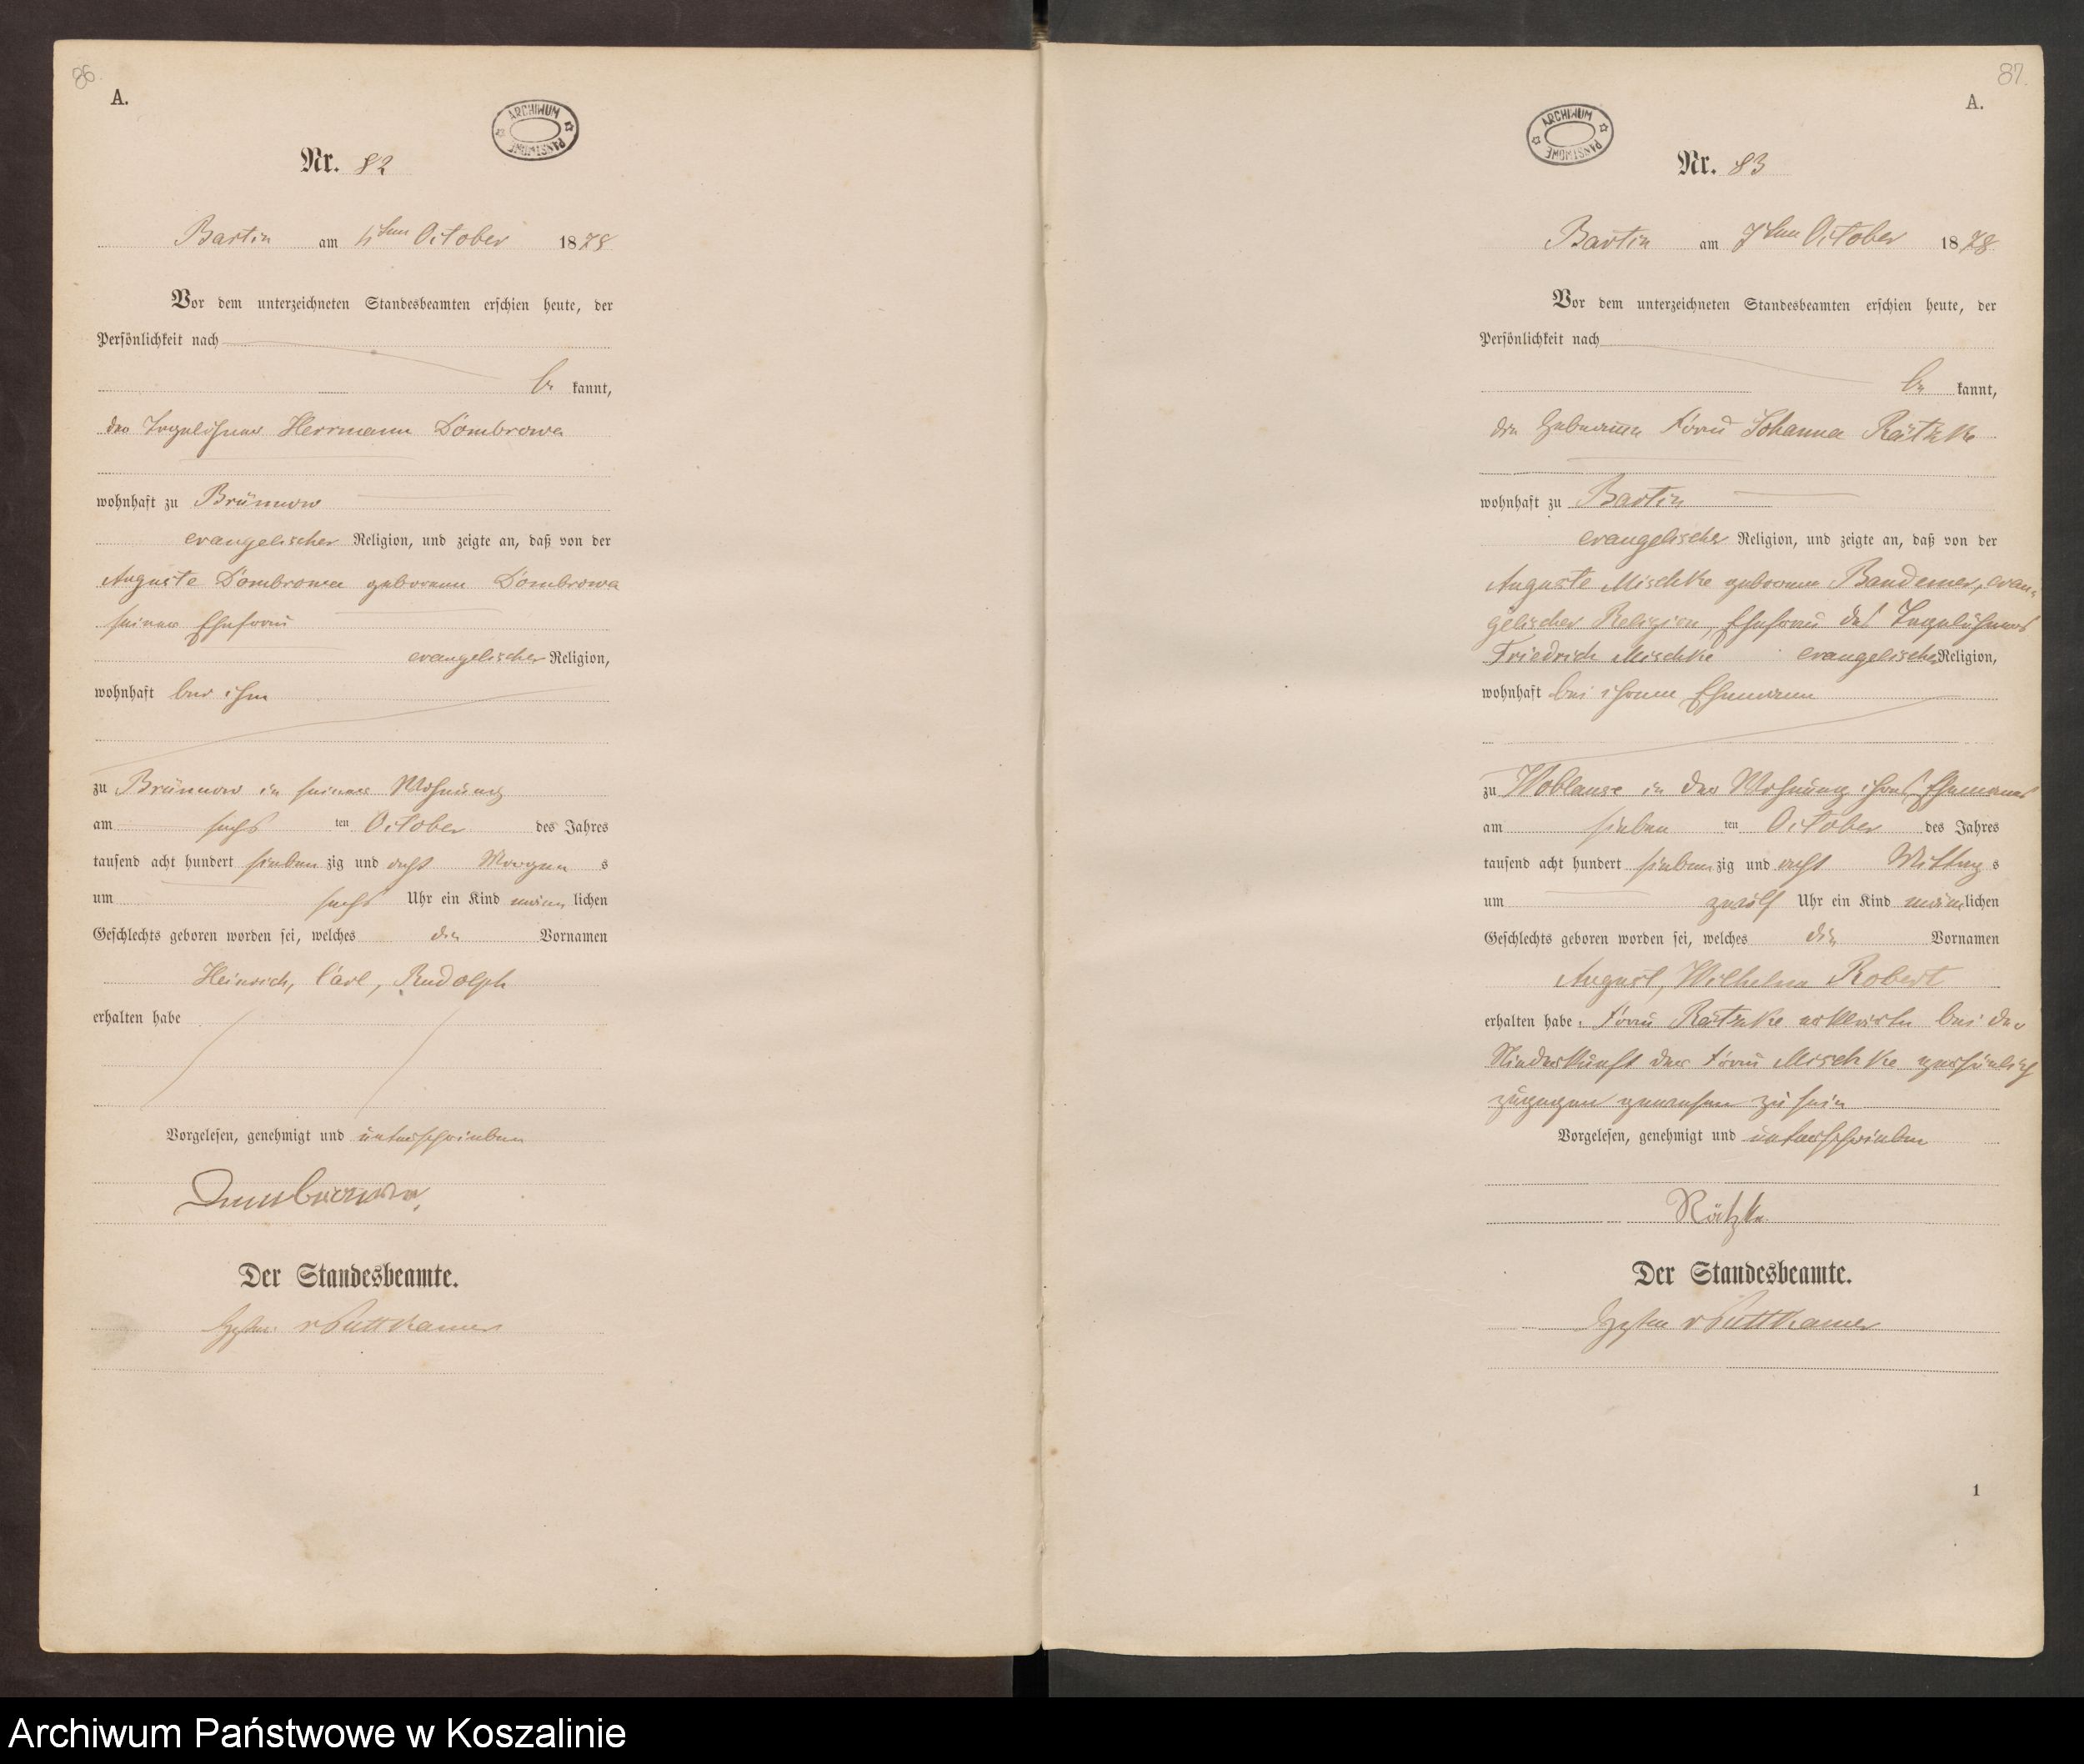 86.
A.
ARCHIWUM PAŃSTWOWE
Nr. 82
Bartin am ten October 1878
Vor dem unterzeichneten Standesbeamten erschien heute, der
Persönlichkeit nach
be kannt,
der Tagelöhner Herrmann Dombrowa
wohnhaft zu Brünnow
evangelischer Religion, und zeigte an, daß von der
Auguste Dombrowa geborenen Dombrowa
seiner Ehefrau
evangelischer Religion,
wohnhaft bei ihm
zu Brünnow in seiner Wohnung
am sechs ten October des Jahres
tausend acht hundert sieben zig und acht Morgen s
um sechs Uhr ein Kind männ lichen
Geschlechts geboren worden sei, welches die Vornamen
Heinrich, Carl, Rudolph
erhalten habe
Vorgelesen, genehmigt und unterschrieben
Dombrowa
Der Standesbeamte.
v Puttkamer
87.
A.
ARCHIWUM PAŃSTWOWE
Nr. 83
Bartin am 7ten October 1878
Vor dem unterzeichneten Standesbeamten erschien heute, der
Persönlichkeit nach
be kannt,
die Hebamme Frau Johanna Rätzke
wohnhaft zu Bartin
evangelischer Religion, und zeigte an, daß von der
Auguste Mischke geborene Bandemer, evan-
gelischer Religion, Ehefrau des Tagelöhners
Friedrich Mischke evangelischer Religion,
wohnhaft bei ihrem Ehemann
zu Woblanse in der Wohnung ihres Ehemannes
am sieben ten October des Jahres
tausend acht hundert sieben zig und acht Mittag s
um zwölf Uhr ein Kind männ lichen
Geschlechts geboren worden sei, welches die Vornamen
August, Wilhelm Robert
erhalten habe. Frau Rätzke erklärte bei der
Niederkunft der Frau Mischke persönlich
zugegen gewesen zu sein
Vorgelesen, genehmigt und unterschrieben
Rätzke
Der Standesbeamte.
v Puttkamer
1
Archiwum Państwowe w Koszalinie